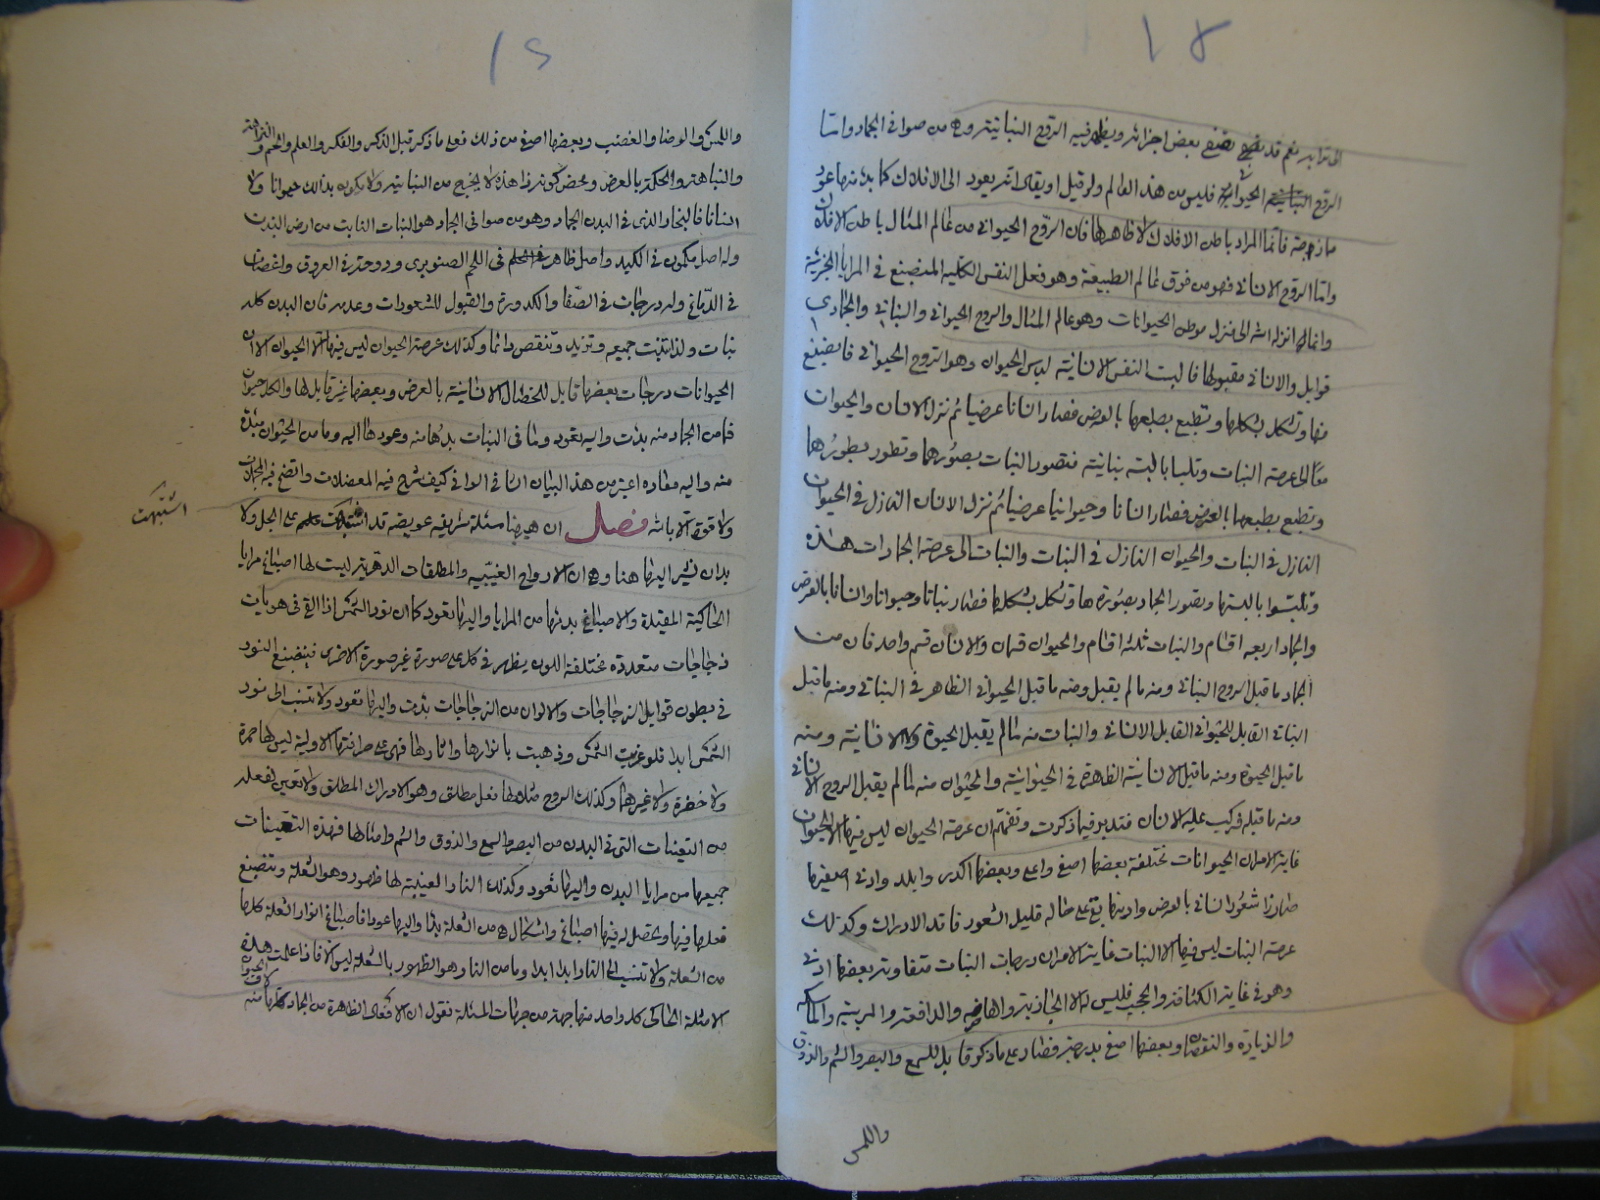 الی ترابه نعم قد یصبغ بعض اجزائه ویظهر فیه الروح النباتیة وهی من صوافی الجماد واما
الروح الحیوانیة فلیس من هذا العالم ولو قیل او یقال انه یعود الی الافلاک کما بدء منها عود
ممازجة فانما المراد باطن الافلاک لا ظاهرها فان الروح الحیوانی من عالم المثال باطن الافلاک
واما الروح الانسانی فهو من فوق عالم الطبیعة وهو فعل النفس الکلیة المنصبغ فی المرایا الجزئیة
وانما انزله الله الی منزل موطن الحیوانات وهو عالم المثال والروح الحیوانی والنباتی والجمادی
قوابل والانسانی مقبولها فالبست النفس الانسانیة لباس الحیوان وهو الروح الحیوانی فانصبغ
فیها وتشکل بشکلها وتطبع بطبعها بالعرض فصار انسانا عرضیا ثم نزل الانسان والحیوان
معا الی عرصة النبات وتلبسا بالبسة نباتیة فتصور النبات بصورهما وتطور بطورهما
وتطبع بطبعهما بالعرض فصار انسانا وحیوانیا عرضیا ثم نزل الانسان النازل فی الحیوان
النازل فی النبات والحیوان النازل فی النبات والنبات الی عرصة الجمادات هذه
وتلبسوا بالبستها وتصور الجماد بصورة ها وتشکل بشکلها فصار نباتا وحیوانا وانسانا بالعرض
والجماد اربعة اقسام والنبات ثلثة اقسام والحیوان قسمان والانسان قسم واحد فان من
الجماد ما قبل الروح النباتی ومنه ما لم یقبل ومنه ما قبل الحیوانی الظاهر فی النباتی ومنه ما قبل
النباتی القابل للحیوانی القابل الانسانی والنبات منه ما لم یقبل الحیوة والانسانیة ومنه
ما قبل الحیوة ومنه ما قبل الانسانیة الظاهرة فی الحیوانیة والحیوان منه ما لم یقبل الروح الانسانی
ومنه ما قبله فرکب علیه الانسان فتدبر فیما ذکرت وتفهم ان عرصة الحیوان لیس فیها الا الحیوان
غایة الامر ان الحیوانات مختلفة بعضها اصفی واعلی وبعضها اکدر وابلد وادنی اصفیها
صار ذا شعور انسانی بالعرض وادنیها بقی علی حاله قلیل الشعور فاقد الادراک وکذلک
عرصة النبات لیس فیها الا النبات غایة الامر ان درجات النبات متفاوتة بعضها ادنی
وهو فی غایة الکثافة والحجب فلیس له الا الجاذبة والهاضمة والدافعة والمربیة والماسکة
والزیادة والنقصان وبعضها اصفی بدرجة فصار علی ما ذکر قابل للسمع والبصر والشم والذوق
واللمس
واللمس والرضا والغضب وبعضها اصفی من ذلک فعلی ما ذکر قبل الذکر والفکر والعلم والحلم والنزاهة
والنباهة والحکمة بالعرض ومحض کونه ذا هذه لا یخرج من النباتیة ولا یکون بذلک حیوانا ولا
انسانا فالبخار الذی فی البدن الجماد وهو من صوافی الجماد هو النبات النابت من ارض البدن
وله اصل مکمون فی الکبد واصل ظاهر فی اللحم الصنوبری ودوحة فی العروق واغصان
فی الدماغ وله درجات فی الصفا والکدورة والقبول للشعودات وعدمه فان البدن کله
نبات ولذا تنبت جمیعه وتزید وتنقص دائما وکذلک عرصة الحیوان لیس فیها الا الحیوان الا ان
الحیوانات درجات بعضها قابل للخصال الانسانیة بالعرض وبعضها غیر قابل لها والکل حیوان
فما من الجماد منه بدئت والیه تعود وما فی النبات بدؤها منه وعودها الیه وما من الحیوان مبدؤه
منه والیه معاده اعتبر من هذا البیان الشافی الوافی کیف شرح فیه المعضلات واتضح فیه المجملات
ولا قوة الا بالله فصل ان هیهنا مسئلة شریفة عویصة قد اشتبهت علی الجل ولا
اشتبهت
بد ان نشیر الیها هنا وهی ان الارواح الغیبیة والمطلقات الدهریة لیست لها اصباغ مرایا
الحاکیة المقیدة والاصباغ بدئها من المرایا والیها تعود کما ان نور الشمس اذا القی فی هویات
زجاجات متعددة مختلفة اللون یظهر فی کل علی صورة غیر صورة الاخری فینصبغ النور
فی بطون قوابل الزجاجات والالوان من الزجاجات بدئت والیها تعود ولا تنسب الی نور
الشمس ابدا فلو غربت الشمس وذهبت بانوارها واثارها فهی علی صرافتها الاولیة لیس لها حمرة
ولا خضرة ولا غیرهما وکذلک الروح مثلها فعل مطلق وهو الادراک المطلق ولا تعین لفعله
من التعینات التی فی البدن من البصر والسمع والذوق والشم وامثالها فهذه التعینات
جمیعها من مرایا البدن والیها تعود وکذلک النار الغیبیة لها ظهور وهو الشعلة وتنصبغ
فعلها فیها ویحصل له فیها اصباغ واشکال هی من الشعلة بدئها والیها عودها فاصباغ انوار الشعلة کلها
من الشعلة ولا تنسب الی النار ابدا ابدا وما من النار وهو الظهور بالشعلة لیس الا فاذا علمت هذه
الامثلة الحاکی کل واحد منها جهة من جهات المسئلة نقول ان الافعال الظاهرة من الجماد کلها منه